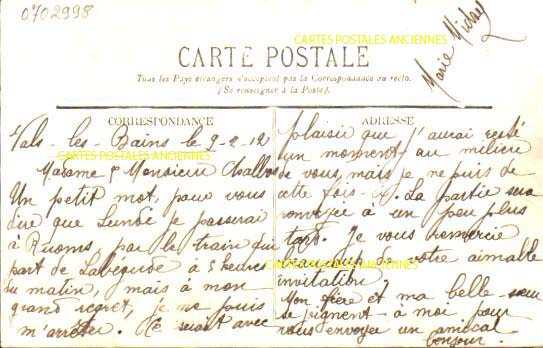 0702998
CARTES POSTALES ANCIENNES
CARTE POSTALE
Tous les Pays étrangers n'acceptent pas la Correspondance au recto.
(Se renseigner à la Poste).
Marie
CORRESPONDANCE
Vals-les-Bains le 9-2-12
CARTES POSTALES ANCIENNES
Madame & Monsieur
Un petit mot, pour vous
dire que Lundi je passerai
à Ruoms, par le train qui
part de Labégude à 5 heures
du matin, mais à mon
grand regret, je ne puis
m'arrêter. Ce serait avec
ADRESSE
plaisir que j'aurai resté
un moment au milieu
de vous mais je ne puis de
cette fois-ci. La partie sera
renvoyée à un peu plus
tard. Je vous remercie
CARTES POSTALES ANCIENNES
beaucoup de votre aimable
invitation.
Mon frère et ma belle-sœur
se joignent à moi pour
vous envoyer un amical
bonjour.